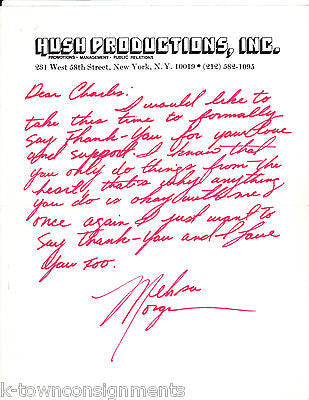 HUSH PRODUCTIONS, INC.
PROMOTIONS • MANAGEMENT • PUBLIC RELATIONS
231 West 58th Street, New York, N.Y. 10019 • (212) 582-1095
Dear Charles:
I would like to
take this time to formally
Say Thank-You for your Love
and Support. I know that
you only do things from the
heart, that's why anything
you do is okay with me;
once again I just want to
Say Thank-You and I Love
You too.
Melissa
Morgan
k-townconsignments
@k-townconsignments.com